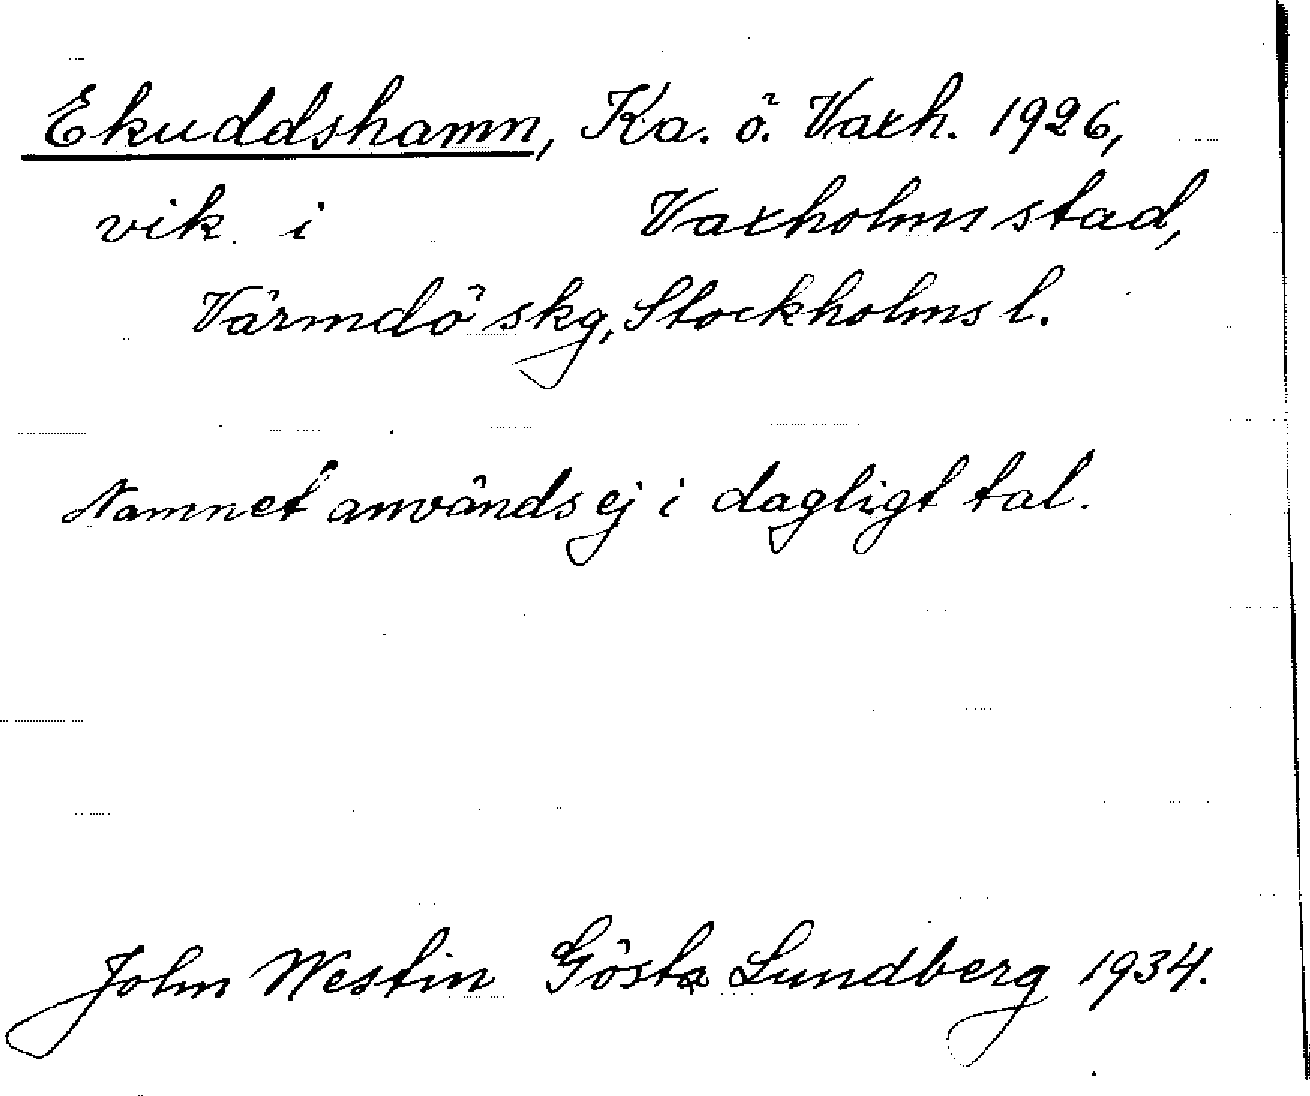 Ekuddshamn, Ka. ö. Vaxh. 1926,
vik i Vaxholms stad,
Värmdö skg, Stockholms l.
Namnet används ej i dagligt tal.
John Westin Gösta Lundberg 1934.